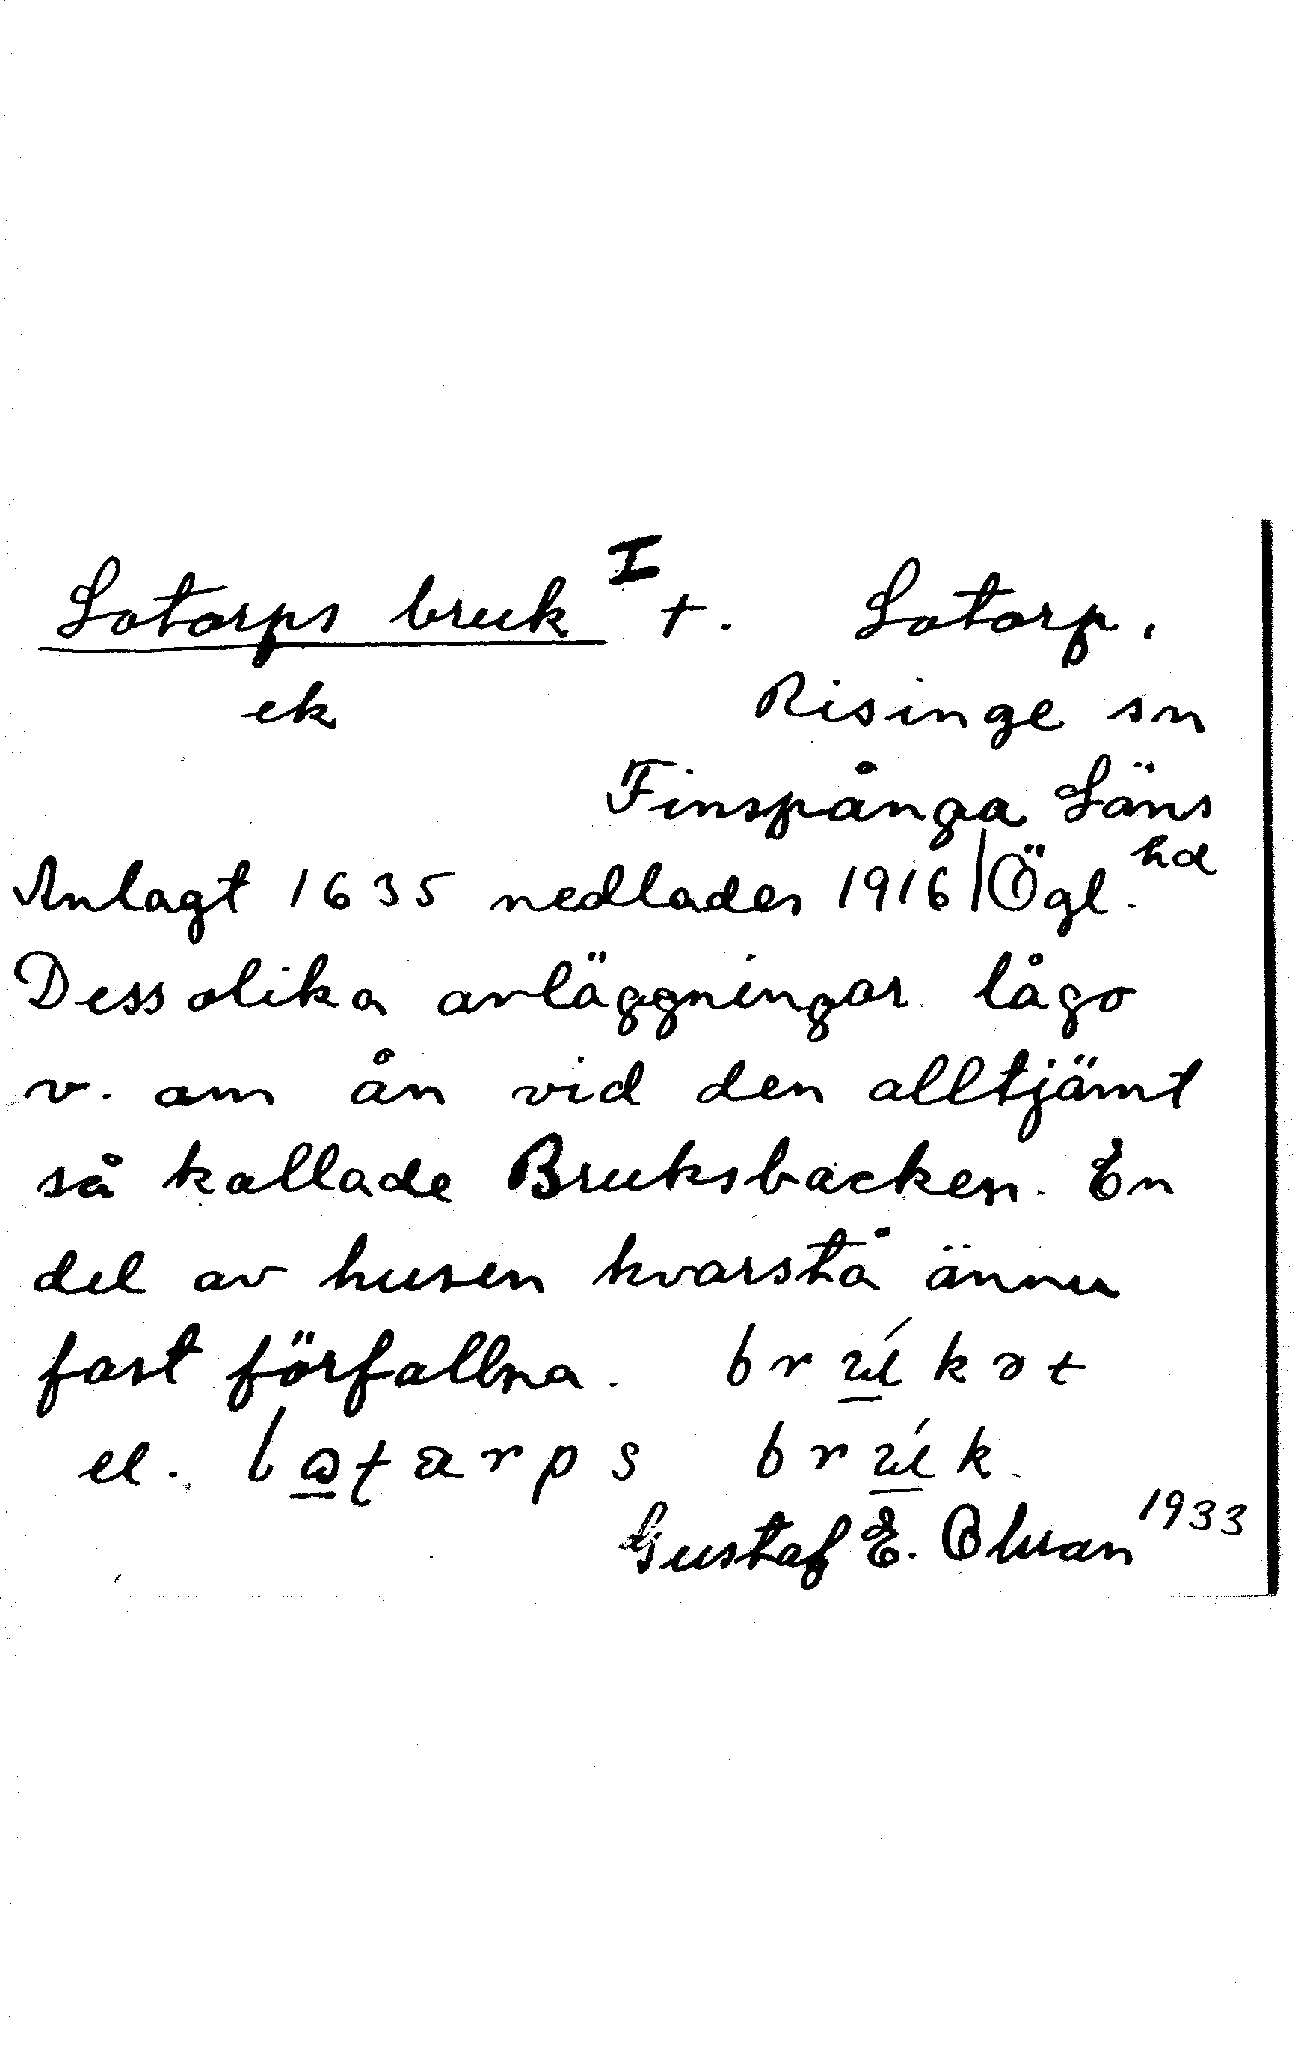 Lotorps bruk I +. Lotorp.
ek Risinge sn
Finspånga Läns
hd
Anlagt 1635 nedlades 1916 | Ögl.
Dess olika anläggningar lågo
v. om ån vid den alltjämt
så kallade Bruksbacken. En
del av husen kvarstå ännu
fast förfallna. brúkət
el. lɷtarps brúk.
Gustaf E. Olsson 1933